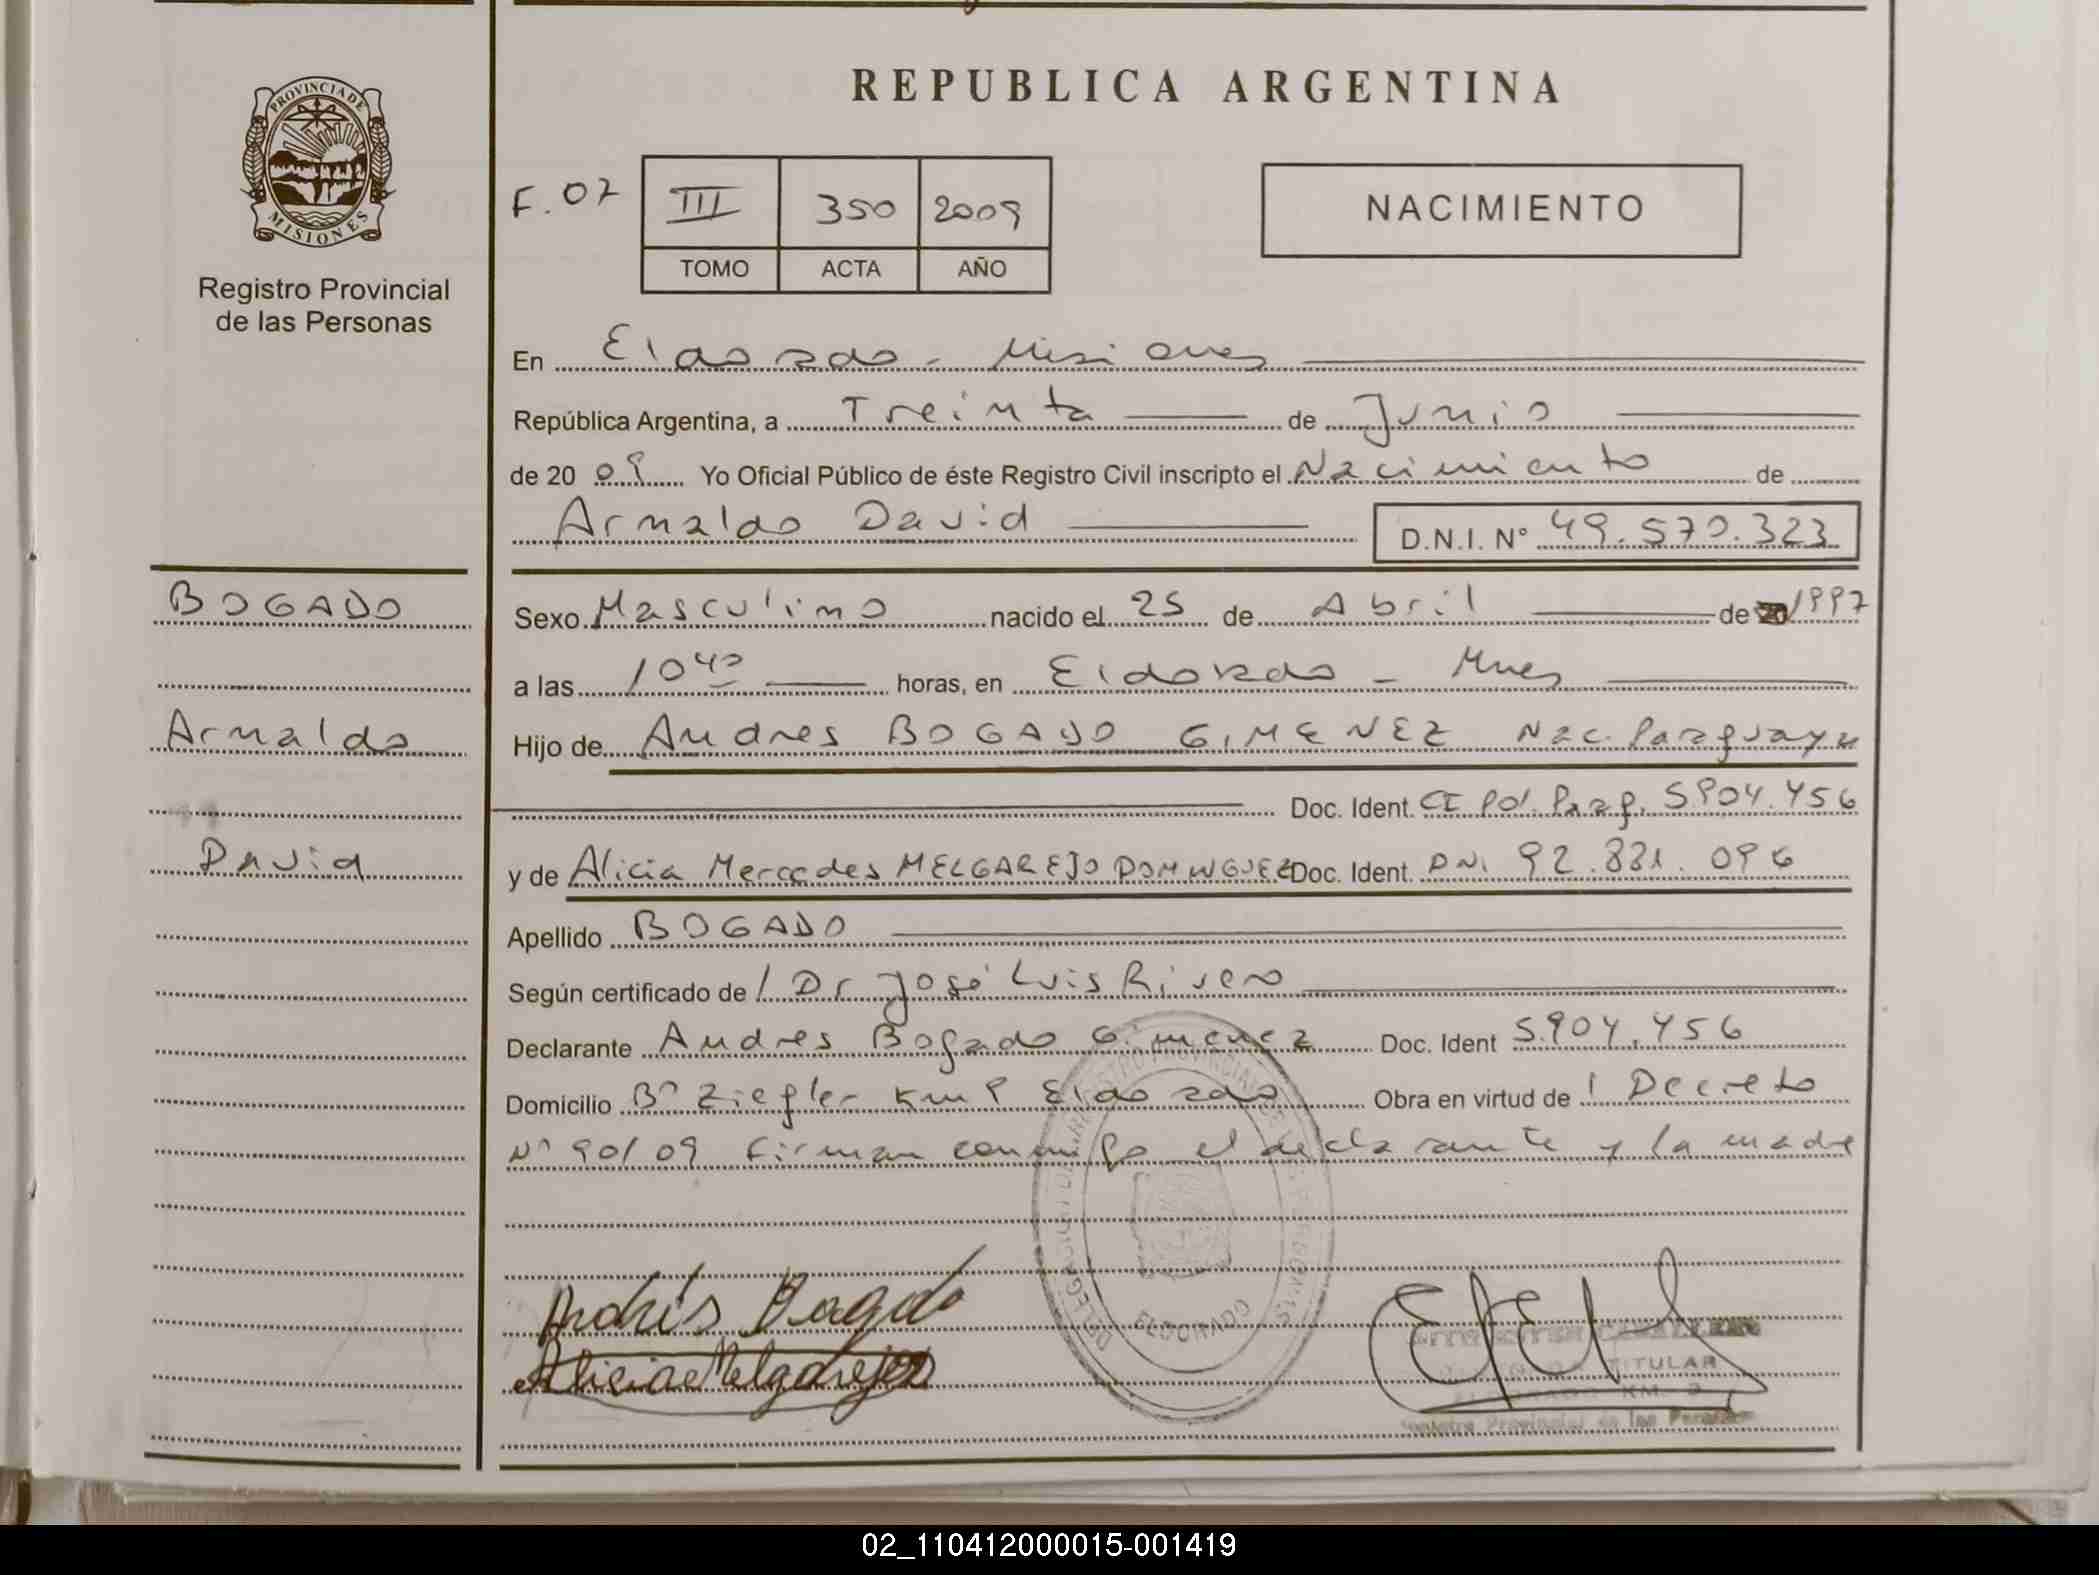 REPUBLICA ARGENTINA
PROVINCIA DE
MISIONES
Registro Provincial
de las Personas
F. 07
III 350 2009
TOMO ACTA AÑO
NACIMIENTO
En Eldorado - Misiones
República Argentina, a Treinta de Junio
de 20 09 Yo Oficial Público de éste Registro Civil inscripto el Nacimiento de
Arnaldo David D.N.I. N° 49.570.323
BOGADO
Arnaldo
David
Sexo Masculino nacido el 25 de Abril de 1997
a las 10 40 horas, en Eldorado - Mnes
Hijo de Andres BOGADO GIMENEZ Nac. Paraguaya
Doc. Ident. CI Pol. Parag. 5.904.456
y de Alicia Mercedes MELGAREJO DOMINGUEZ Doc. Ident. DNI 92.881.096
Apellido BOGADO
Según certificado de / Dr José Luis Rivero
Declarante Andres Bogado Gimenez Doc. Ident 5.904.456
Domicilio B° Ziegler Km 9 Eldorado Obra en virtud de / Decreto
N° 90/09 Firman conmigo el declarante y la madre
Andrés Bogado
Alicia Melgarejo
ELDORADO
TITULAR
Registro Provincial de las Personas
02_110412000015-001419